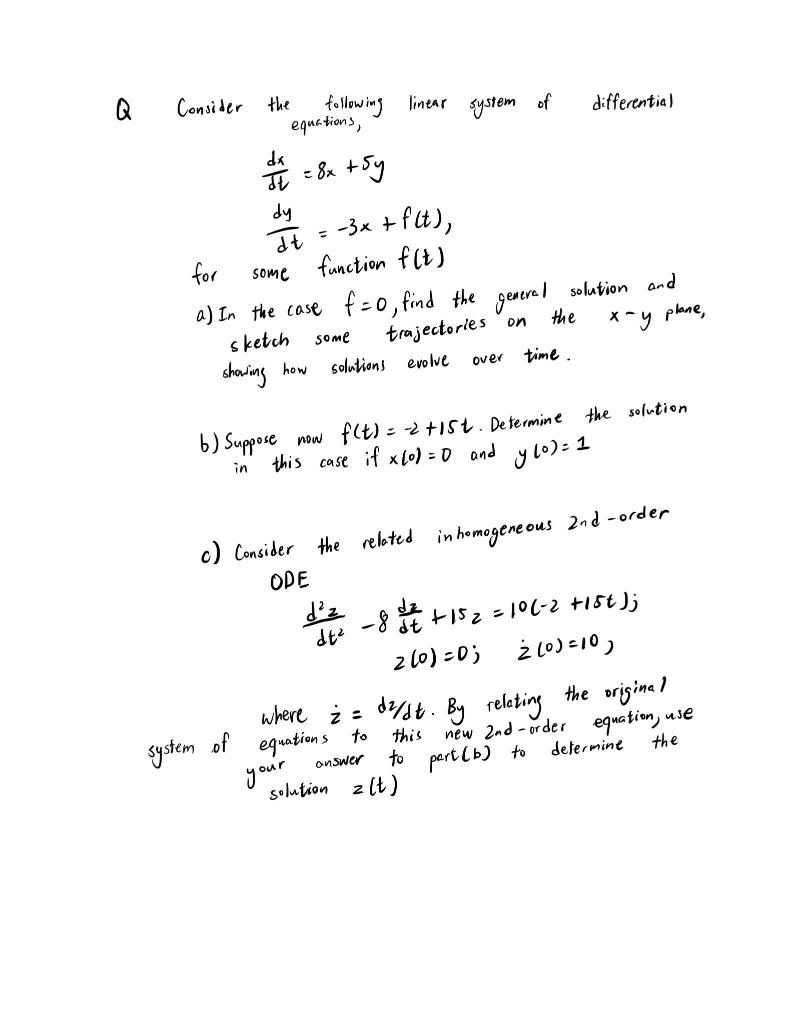 Q Consider the following linear system of differential
equations,
dx/dt = 8x + 5y
dy/dt = -3x + f(t),
for some function f(t)
a) In the case f=0, find the general solution and
sketch some trajectories on the x-y plane,
showing how solutions evolve over time.
b) Suppose now f(t) = -2+15t. Determine the solution
in this case if x(0) = 0 and y(0) = 1
c) Consider the related inhomogeneous 2nd-order
ODE
d²z/dt² - 8 dz/dt + 15z = 10(-2 + 15t);
z(0) = 0; ż(0) = 10,
where ż = dz/dt. By relating the original
system of equations to this new 2nd-order equation, use
your answer to part(b) to determine the
solution z(t)